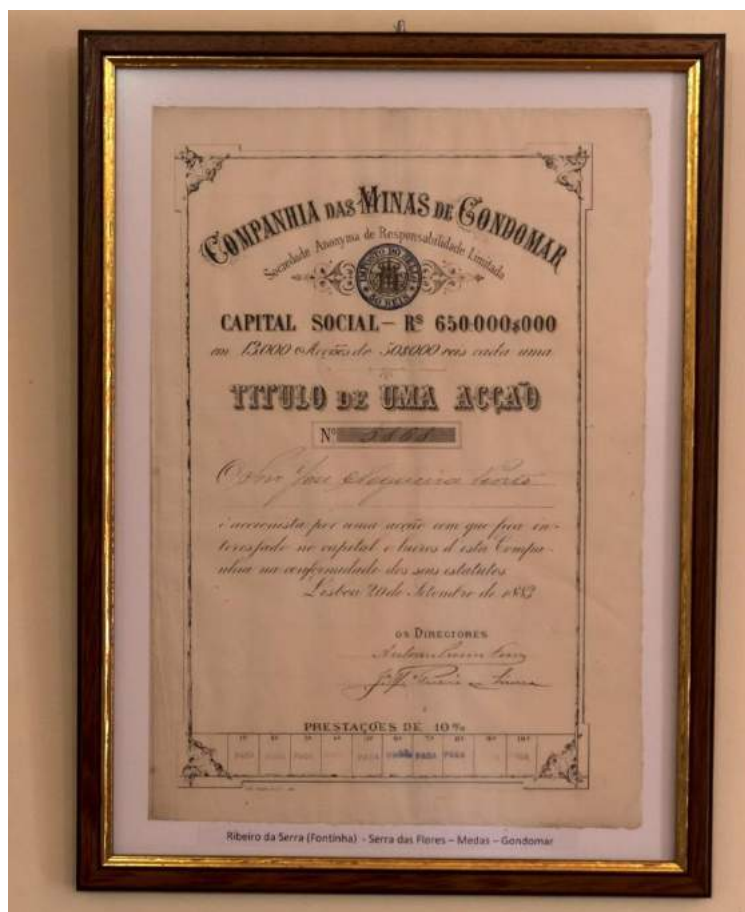 COMPANHIA DAS MINAS DE GONDOMAR
Sociedade Anonyma de Responsabilidade Limitada
IMPOSTO DO SELLO
50 REIS
CAPITAL SOCIAL – RS 650.000$000
em 13.000 Acções de 50$000 reis cada uma
TITULO DE UMA ACÇÃO
Nº 5868
O Snr José Nogueira
é accionista por uma acção com que fica in-
teressado no capital e lucros d'esta Compa-
nhia na conformidade dos seus estatutos.
Lisboa 20 de Setembro de 1883
OS DIRECTORES
PRESTAÇÕES DE 10 %
1ª 2ª 3ª 4ª 5ª 6ª 7ª 8ª 9ª 10ª
PAGA PAGA PAGA PAGA PAGA PAGA
Ribeiro da Serra (Fontinha) - Serra das Flores – Medas – Gondomar